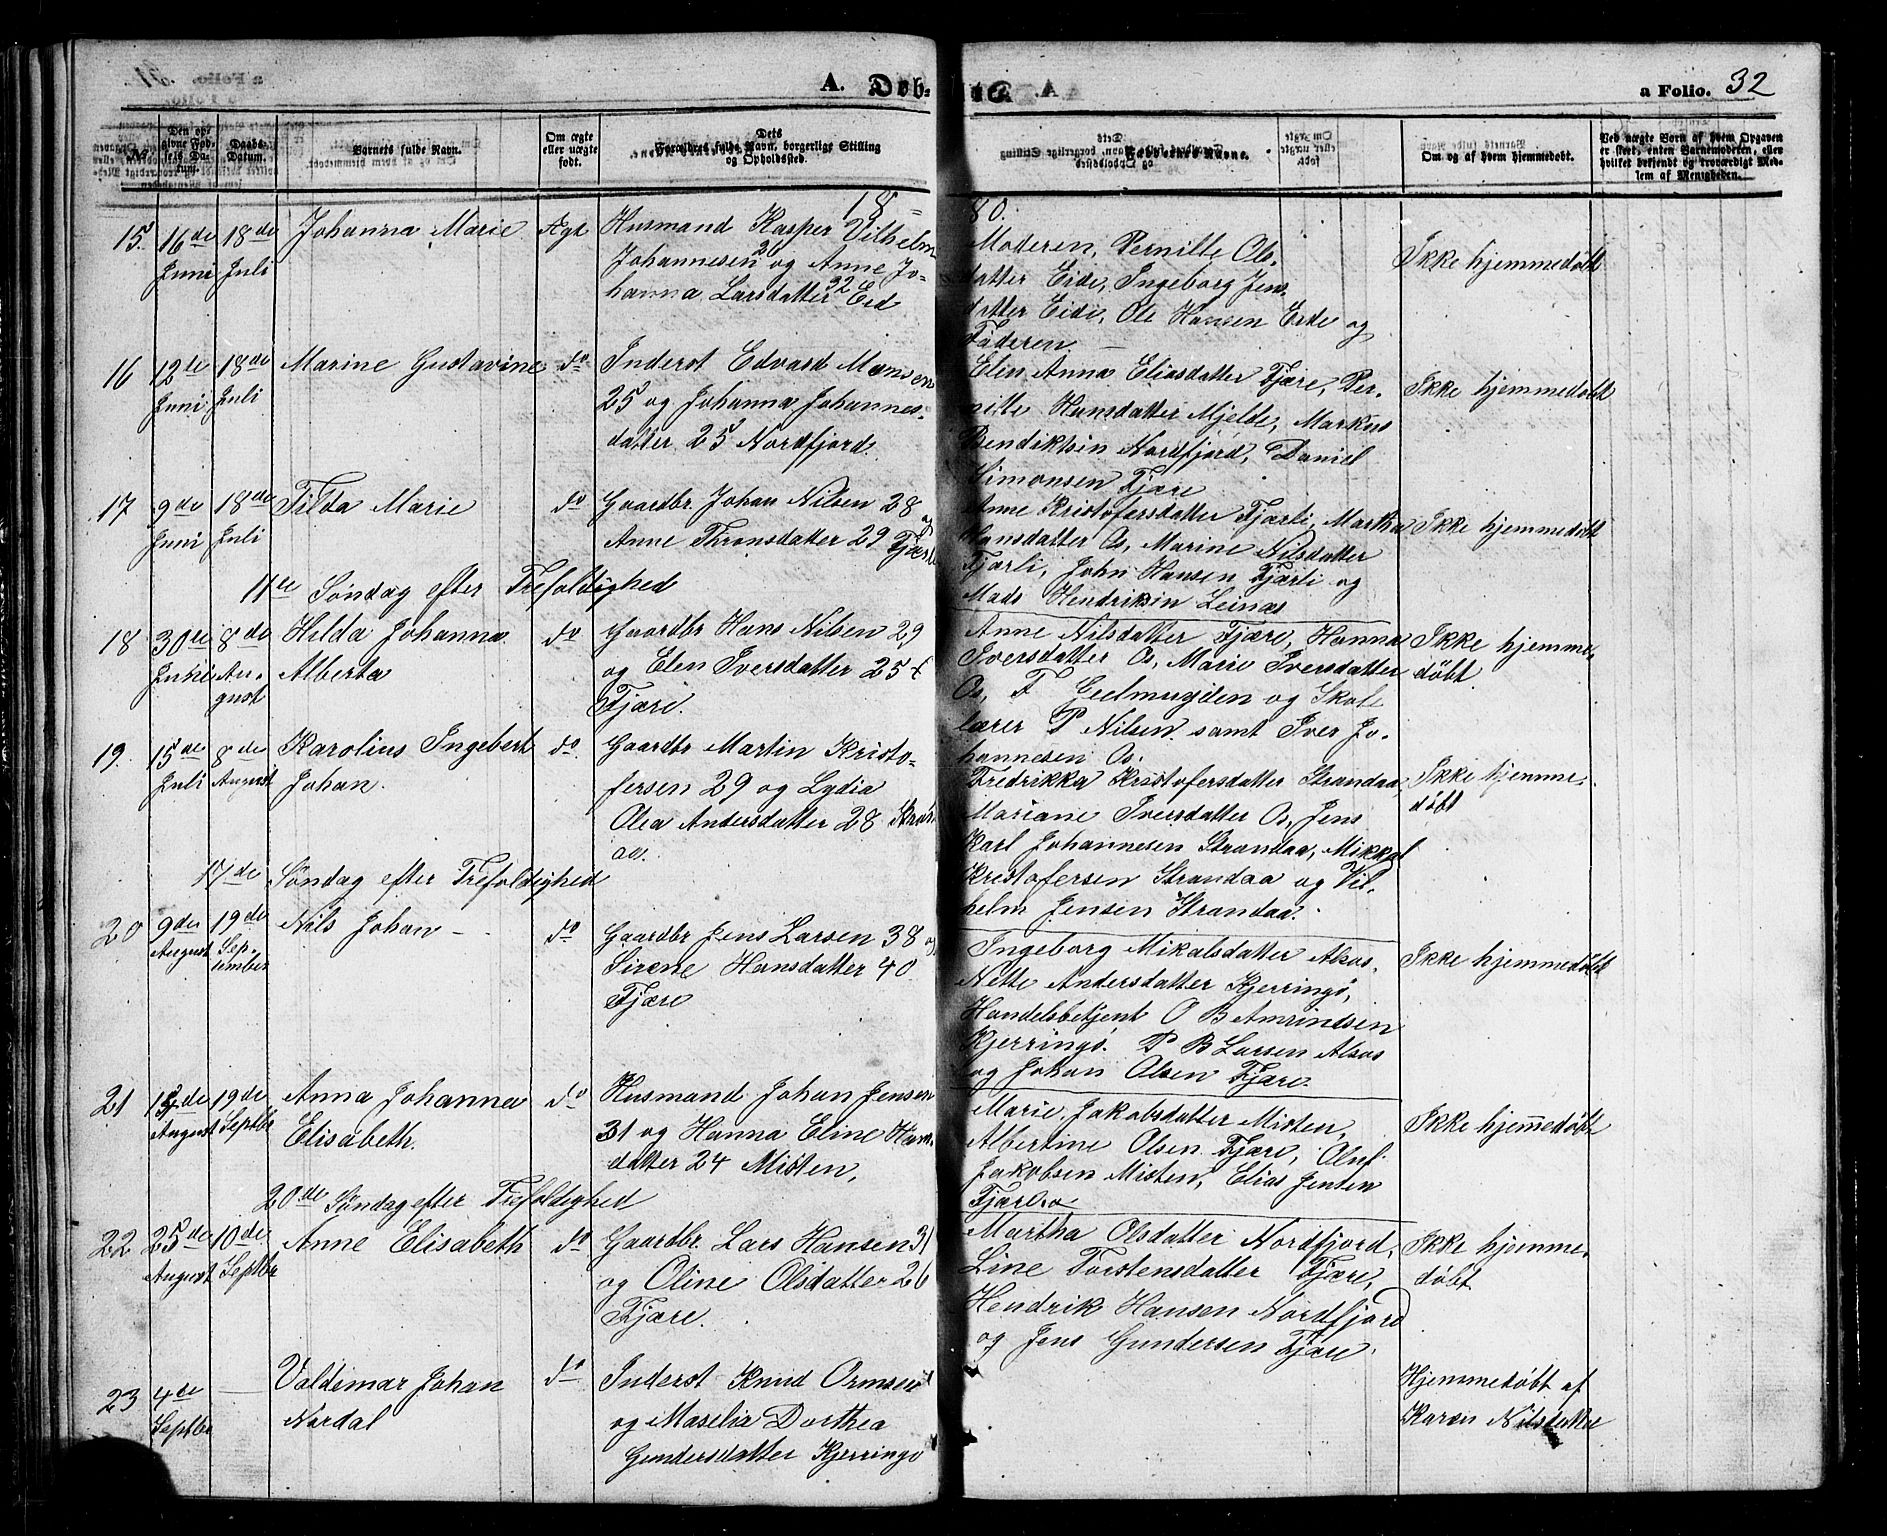 A. Døb-
a Folio. 32
No.
Den opgivne Fødsels Datum.
Daabs-Datum.
Barnets fulde Navn.
Om ægte eller uægte født.
Forældres fulde Navn, borgerlige Stilling og Opholdssted.
Faddernes Navne.
Om og af hvem hjemmedøbt.
Ved uægte Barn af hvem Opgaven er skeet, enten Barnemoderen, eller hvilket bekjendt og troværdigt Medlem af Menigheden.
18-
80.
15.
16de Juni
18de Juli
Johanna Marie
Ægt
Husmand Kasper Vilhelm
Johannesen 26 og Anne Jo-
hanna Larsdatter 32 Eid
Moderen, Pernille Ols-
datter Eide, Ingeborg Jens
datter Eide, Ole Hansen Eide og
Faderen
Ikke hjemmedøbt
16
12te Juni
18de Juli
Marine Gustavine
do
Inderst Edvard Monsen
25 og Johanna Johannes-
datter 25 Nordfjord.
Elen Anna Eliasdatter Fjære, Per-
nille Hansdatter Mjelde, Markus
Bendiktsen Nordfjord, Daniel
Simonsen Fjære
Ikke hjemmedøbt
17
9de Juni
18de Juli
Tilda Marie
do
Gaardbr. Johan Nilsen 28 og
Anne Thronsdatter 29 Fjærli
Anne Kristofersdatter Fjærli, Martha
Hansdatter Os, Marine Nilsdatter
Fjærli, John Hansen Fjærli og
Mads Hendriksen Leinæs
Ikke hjemmedøbt
11te Søndag efter Trefoldighed
18
30te
8de August
Hilda Johanna
Alberta
do
Gaardbr Hans Nilsen 29
og Elen Iversdatter 25
Fjære.
Anne Nilsdatter Fjære, Hanna
Iversdatter Os, Marie Iversdatter
Os, F Geelmuyden og Skole
lærer P Nilsen samt Iver Jo-
hannesen Os.
Ikke hjemme-
døbt
19.
15de Juli
8de August
Karolius Ingebert
Johan.
do.
Gaardbr Martin Kristo-
fersen 29 og Lydia
Olea Andersdatter 28 Strand
aa.
Fredrikka Kristofersdatter Strandaa,
Mariane Iversdatter Os, Jens
Karl Johannesen Strandaa, Mikkal
Kristofersen Strandaa og Vil-
helm Jensen Strandaa.
Ikke hjemme-
døbt
17de Søndag efter Trefoldighed
20
9de August
19de September
Nils Johan
do
Gaardbr Jens Larsen 38 og
Sirene Hansdatter 40
Fjære
Ingeborg Mikalsdatter Alsos,
Nette Andersdatter Kjerringø,
Handelsbetjent O B Amrindsen
Kjerringø. P B Larsen Alsos
og Johan Olsen Fjære.
Ikke hjemmedøbt
21
August
19de Septbr
Anna Johanna
Elisabeth.
do
Husmand Johan Jensen
31 og Hanna Eline Hans
datter 24 Misten,
Marie Jakobsdatter Misten,
Albertine Olsen Fjære, Oluf
Jakobsen Misten, Elias Jensen
Fjære
Ikke hjemmedøbt
20de Søndag efter Trefoldighed
22
25de August
10de Septbr
Anne Elisabeth
do
Gaardbr. Lars Hansen 31
og Oline Olsdatter 26
Fjære.
Martha Olsdatter Nordfjord,
Line Torstensdatter Fjære,
Hendrik Hansen Nordfjord
og Jens Gundersen Fjære.
Ikke hjemme-
døbt
23
4de Septbr
Valdimar Johan
Nordal
do
Inderst Knud Ormsen
og Maselia Dorthea
Gundersdatter Kjerringø
Hjemmedøbt af
Karen Nilsdatter